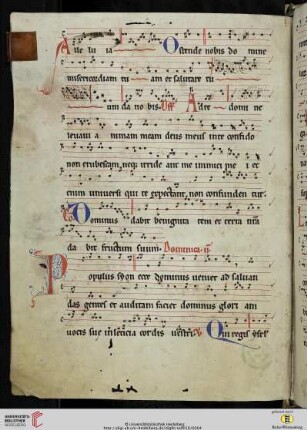 Alle lu ia Ostende nobis do mine
misericordiam tu am et salutare tu
um da no bis. Off Ad te domi ne
leuaui a nimam meam deus meus in te confido
non erubescam, neq; irride ant me inimici me i et
enim uniuersi qui te expectant, non confunden tur.
Dominus dabit benignita tem et terra nra
da bit fructum suum. Dominica ij
Populus syon ecce dominus ueniet ad saluan
das gentes et auditam faciet dominus glori am
uocis sue in leticia cordis uestri. Qui regis isrl
UNIVERSITÄTS-
BIBLIOTHEK
HEIDELBERG
© Universitätsbibliothek Heidelberg